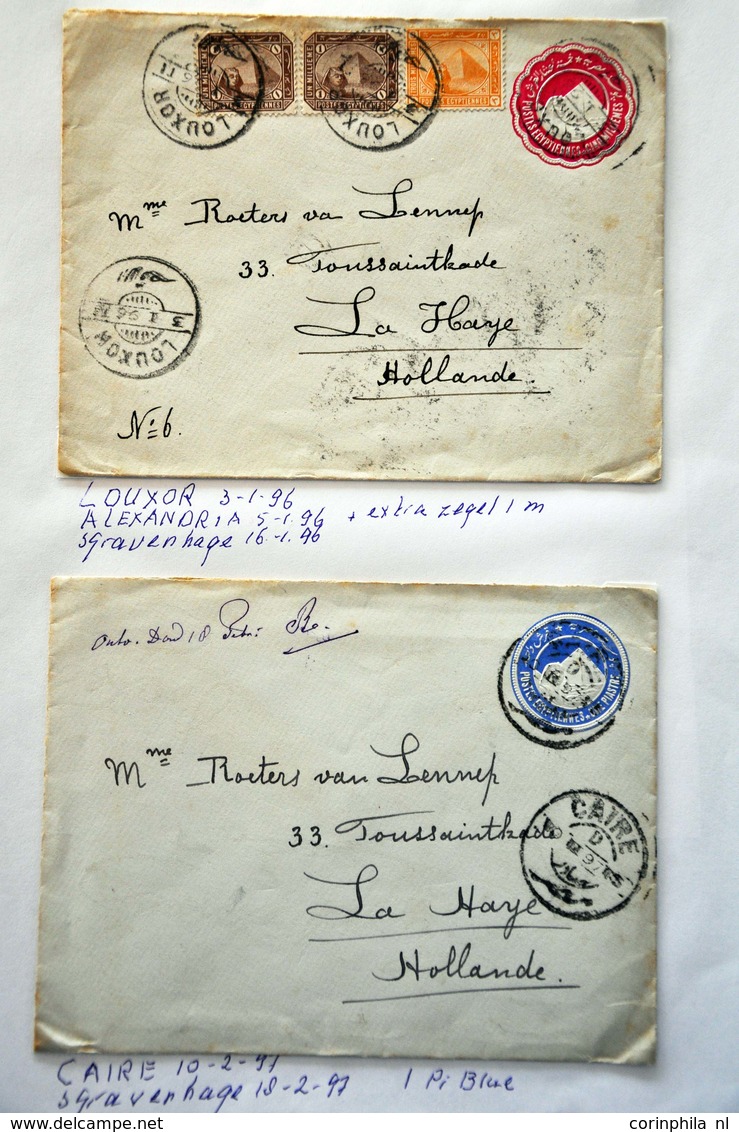 UN MILLIEME
POSTES EGYPTIENNES
UN MILLIEME
POSTES EGYPTIENNES
POSTES EGYPTIENNES
POSTES EGYPTIENNES - CINQ MILLIEMES
LOUXOR
LOUXOR
Mme Roeters van Lennep
33. Toussaintkade
La Haye
Hollande.
LOUXOR
3 I 96
No 6.
LOUXOR 3-1-96
ALEXANDRIA 5-1-96 + extra zegel 1 m
sgravenhage 16-1-96
POSTES EGYPTIENNES - UNE PIASTRE
Mme Roeters van Lennep
33. Toussaintkade
La Haye
Hollande.
CAIRE
D
CAIRE 10-2-97
sgravenhage 18-2-97 1 Pi Blue
corinphila nl